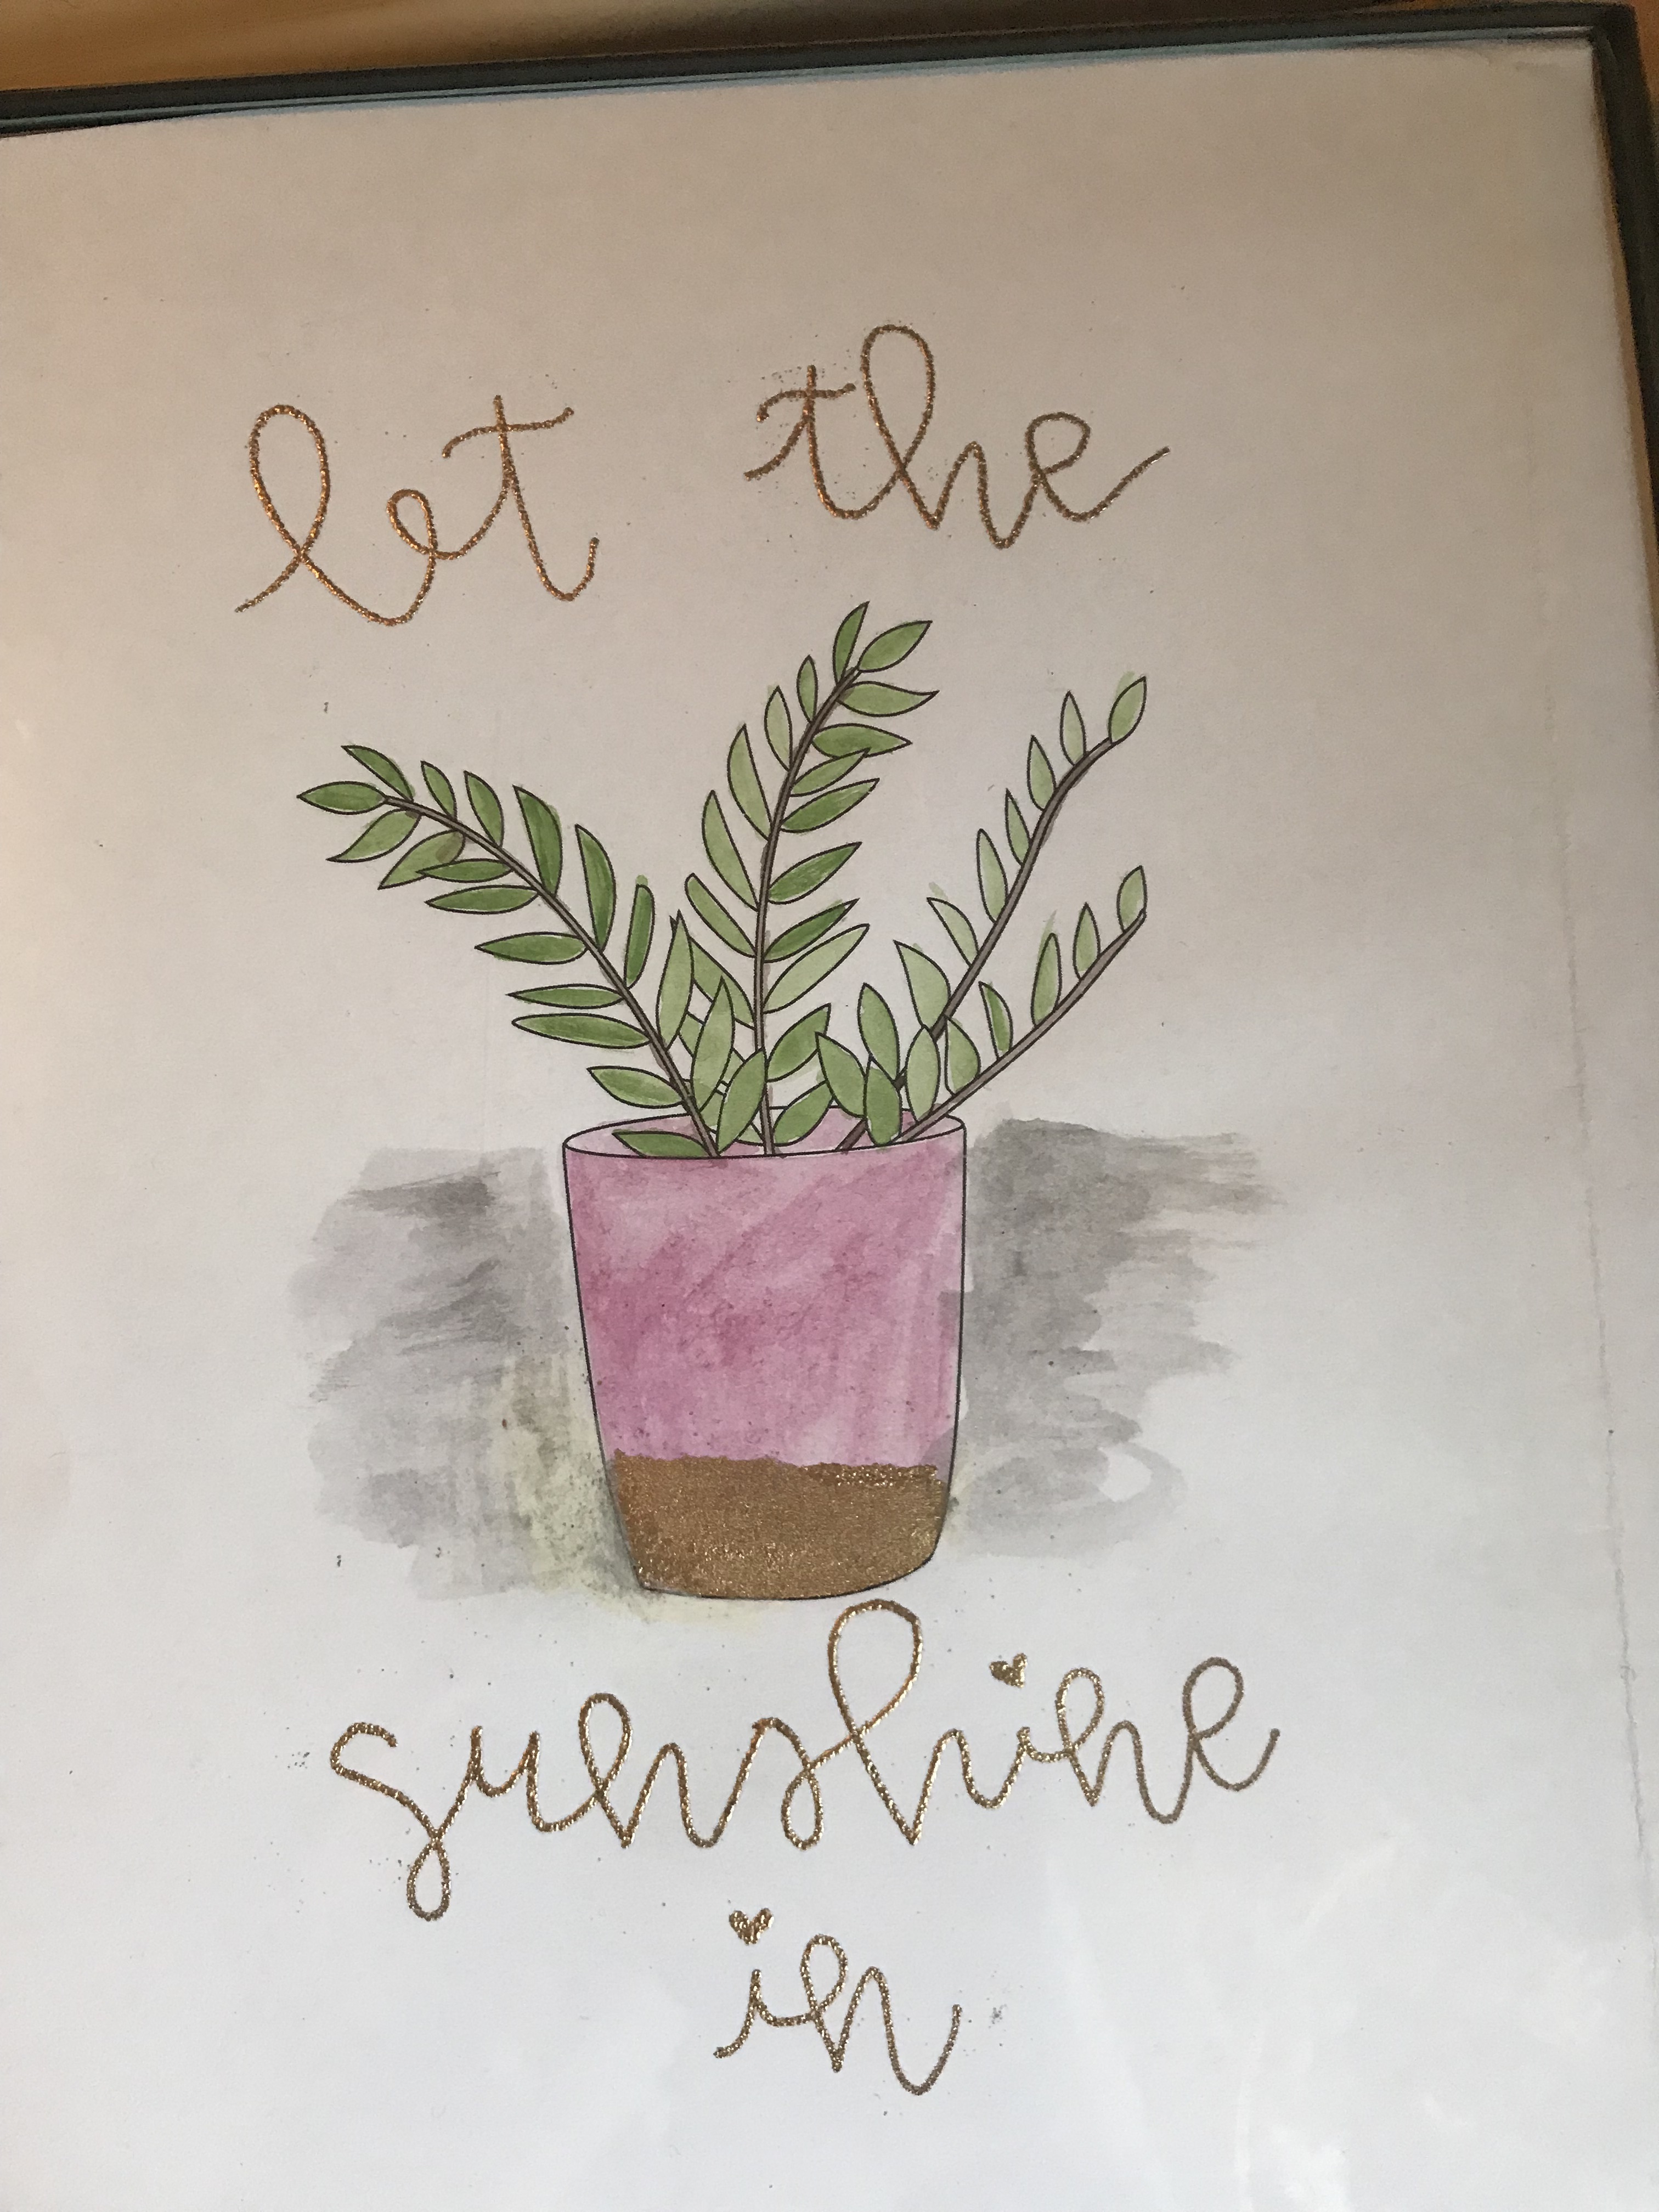 let the
sunshine
in